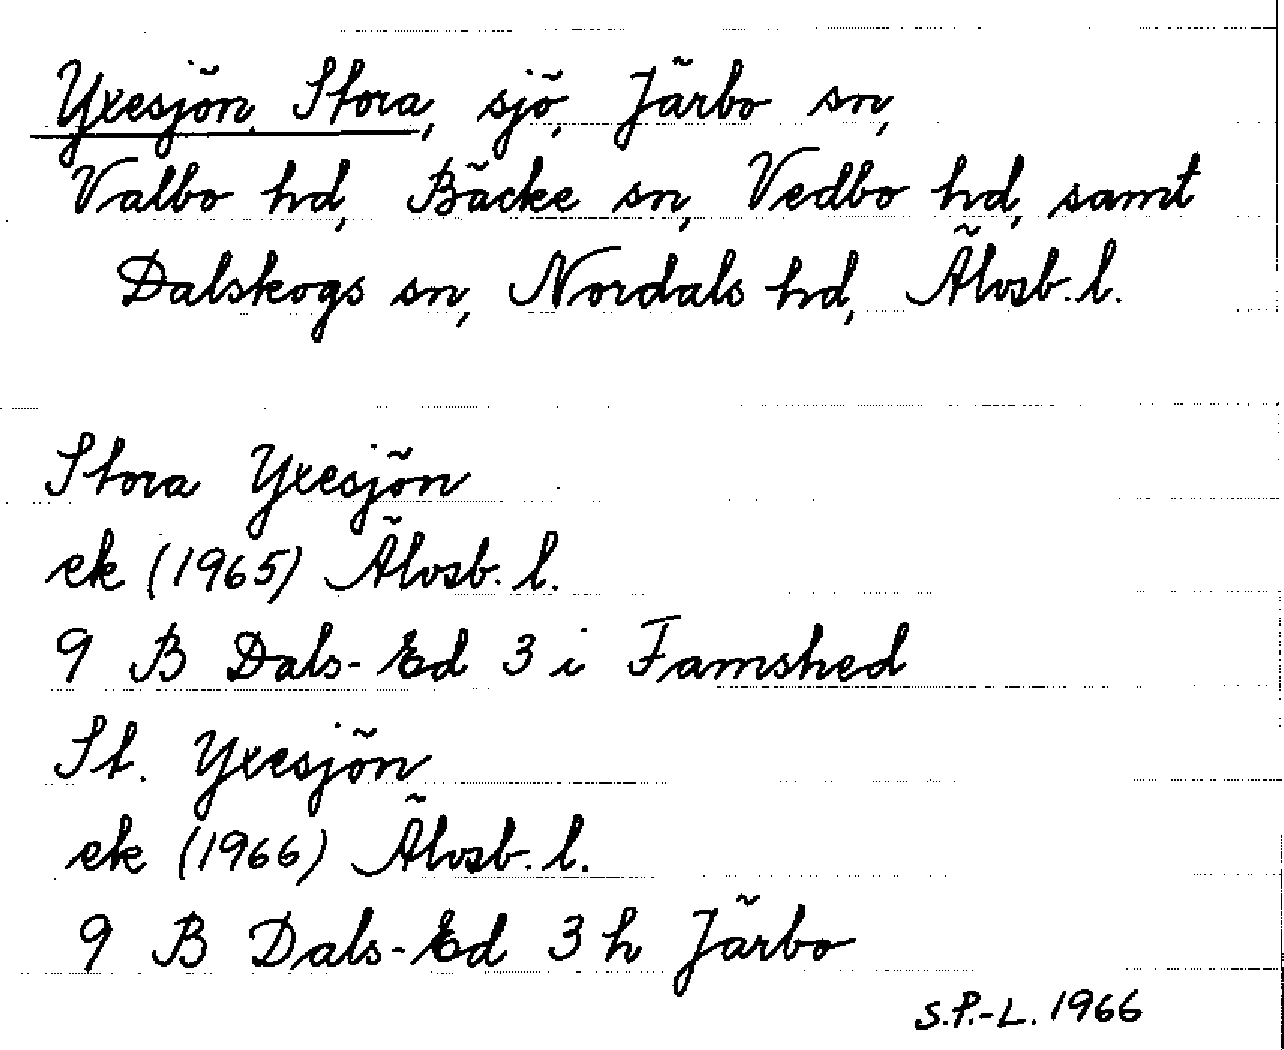 Yxesjön, Stora, sjö, Järbo sn,
Valbo hd, Bäcke sn, Vedbo hd, samt
Dalskogs sn, Nordals hd, Älvsb. l.
Stora Yxesjön
ek (1965) Älvsb. l.
9 B Dals-Ed 3 i Famshed
St. Yxesjön
ek (1966) Älvsb. l.
9 B Dals-Ed 3 h Järbo
S.P.-L. 1966